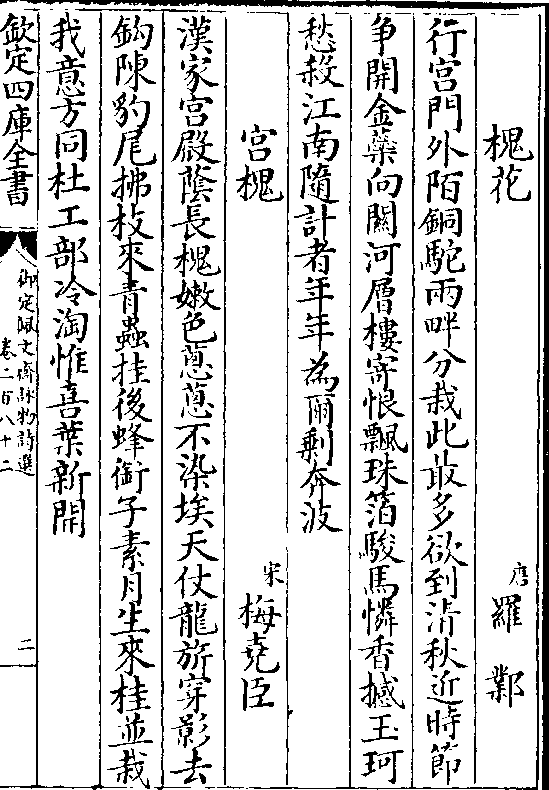 槐花 唐 羅鄴
行宫門外陌銅駝兩畔分栽此最多欲到清秋近時節
争開金蘂向關河層樓寄恨飄珠箔駿馬憐香撼玉珂
愁殺江南隨計者年年為爾剰奔波
宫槐 宋 梅堯臣
漢家宫殿蔭長槐嫩色葱葱不染埃天仗龍旂穿影去
鈎陳豹尾拂枝來青蟲挂後蜂銜子素月生來桂並栽
我意方同杜工部冷淘惟喜葉新開
欽定四庫全書
御定佩文齋詠物詩選
卷二百八十二
二